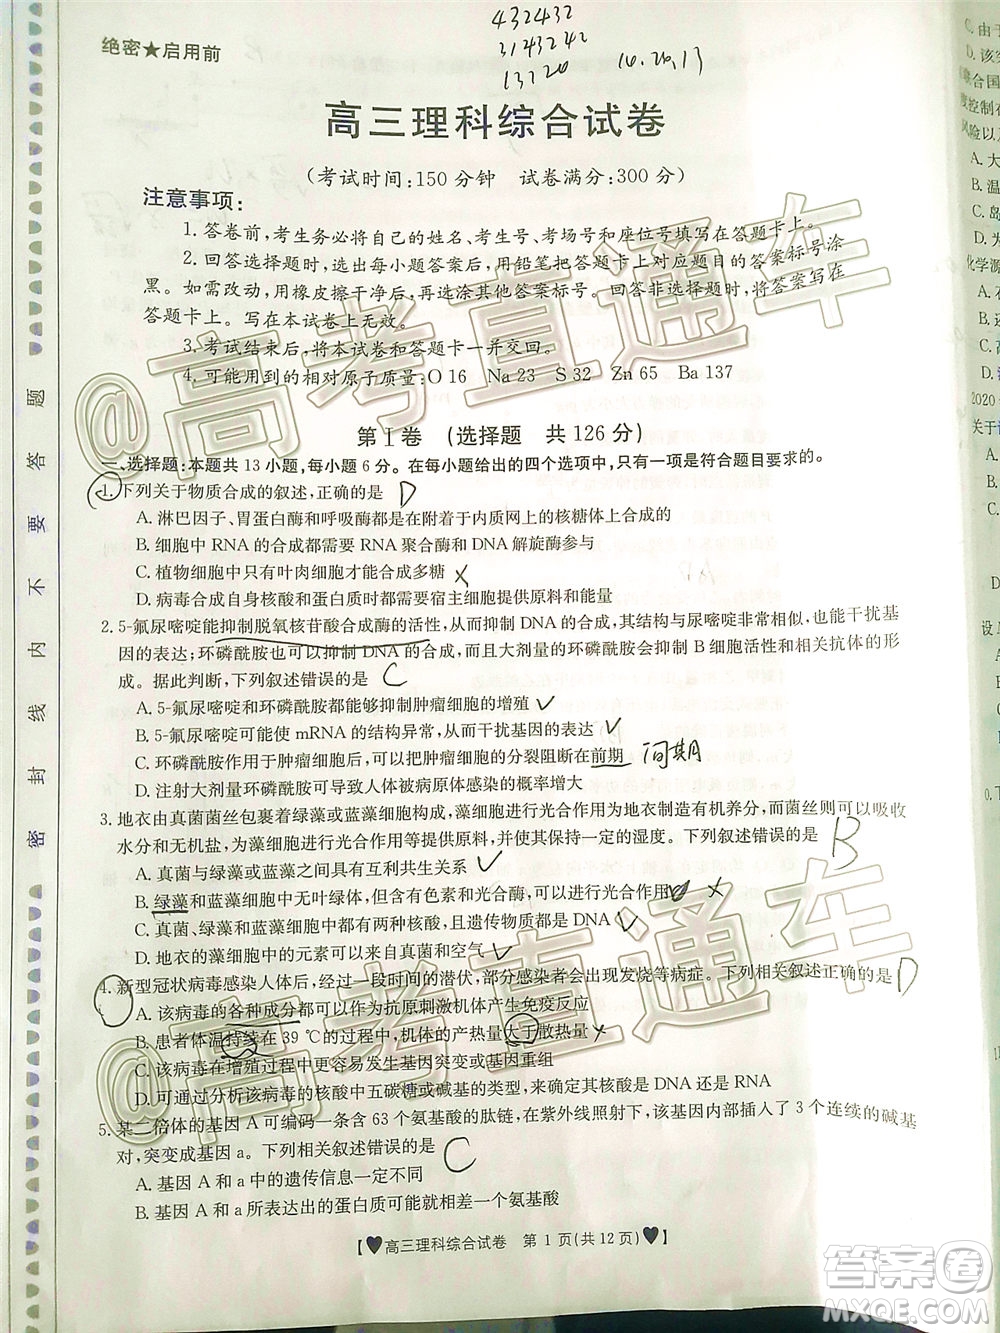 432432
3143242
13220 10.20.13
绝密★启用前
高三理科综合试卷
(考试时间:150分钟 试卷满分:300分)
注意事项:
1.答卷前,考生务必将自己的姓名、考生号、考场号和座位号填写在答题卡上。
2.回答选择题时,选出每小题答案后,用铅笔把答题卡上对应题目的答案标号涂
黑。如需改动,用橡皮擦干净后,再选涂其他答案标号。回答非选择题时,将答案写在
答题卡上。写在本试卷上无效。
3.考试结束后,将本试卷和答题卡一并交回。
4.可能用到的相对原子质量:O 16 Na 23 S 32 Zn 65 Ba 137
第Ⅰ卷 (选择题 共126分)
一、选择题:本题共13小题,每小题6分。在每小题给出的四个选项中,只有一项是符合题目要求的。
1.下列关于物质合成的叙述,正确的是 D
A.淋巴因子、胃蛋白酶和呼吸酶都是在附着于内质网上的核糖体上合成的
B.细胞中RNA的合成都需要RNA聚合酶和DNA解旋酶参与
C.植物细胞中只有叶肉细胞才能合成多糖
D.病毒合成自身核酸和蛋白质时都需要宿主细胞提供原料和能量
2.5-氟尿嘧啶能抑制脱氧核苷酸合成酶的活性,从而抑制DNA的合成,其结构与尿嘧啶非常相似,也能干扰基
因的表达;环磷酰胺也可以抑制DNA的合成,而且大剂量的环磷酰胺会抑制B细胞的活性以及相关抗体的形
成。据此判断,下列叙述错误的是 C
A.5-氟尿嘧啶和环磷酰胺都能够抑制肿瘤细胞的增殖
B.5-氟尿嘧啶可能使mRNA的结构异常,从而干扰基因的表达
C.环磷酰胺作用于肿瘤细胞使肿瘤细胞的分裂阻断在前期 间期
D.注射大剂量环磷酰胺可导致人体被病原体感染的概率增大
3.地衣由真菌菌丝包裹着绿藻或蓝藻细胞构成,藻细胞进行光合作用为地衣制造有机养分,而菌丝则可以吸收
水分和无机盐,为藻细胞的光合作用等提供原料,并使藻细胞保持一定的湿度。下列叙述错误的是 B
A.真菌与绿藻或蓝藻之间具有互利共生关系
B.绿藻和蓝藻细胞中无叶绿体,但含有色素和光合酶,可以进行光合作用
C.真菌、绿藻和蓝藻细胞中都有两种核酸,且遗传物质都是DNA
D.地衣的藻细胞中的元素可以来自真菌和空气
4.新型冠状病毒感染人体后,经过一段时间的潜伏,部分感染者会出现发烧等病症。下列相关叙述正确的是 D
A.该病毒的各种成分都可以作为抗原刺激机体产生免疫反应
B.患者体温持续在39℃的过程中,机体的产热量大于散热量
C.该病毒在增殖过程中更容易发生基因突变或基因重组
D.可通过分析该病毒的核酸中五碳糖或碱基的类型,来确定其核酸是DNA还是RNA
5.某二倍体的基因A可编码一条含63个氨基酸的肽链,在紫外线照射下,该基因内部插入了3个连续的碱基
对,突变成基因a。下列相关叙述错误的是 C
A.基因A和a中的遗传信息一定不同
B.基因A和a所表达出的蛋白质可能就相差一个氨基酸
【♥高三理科综合试卷 第1页(共12页)♥】
密 封 线 内 不 要 答 题
@高考直通车
@高考直通车
答案卷
MXQE.COM